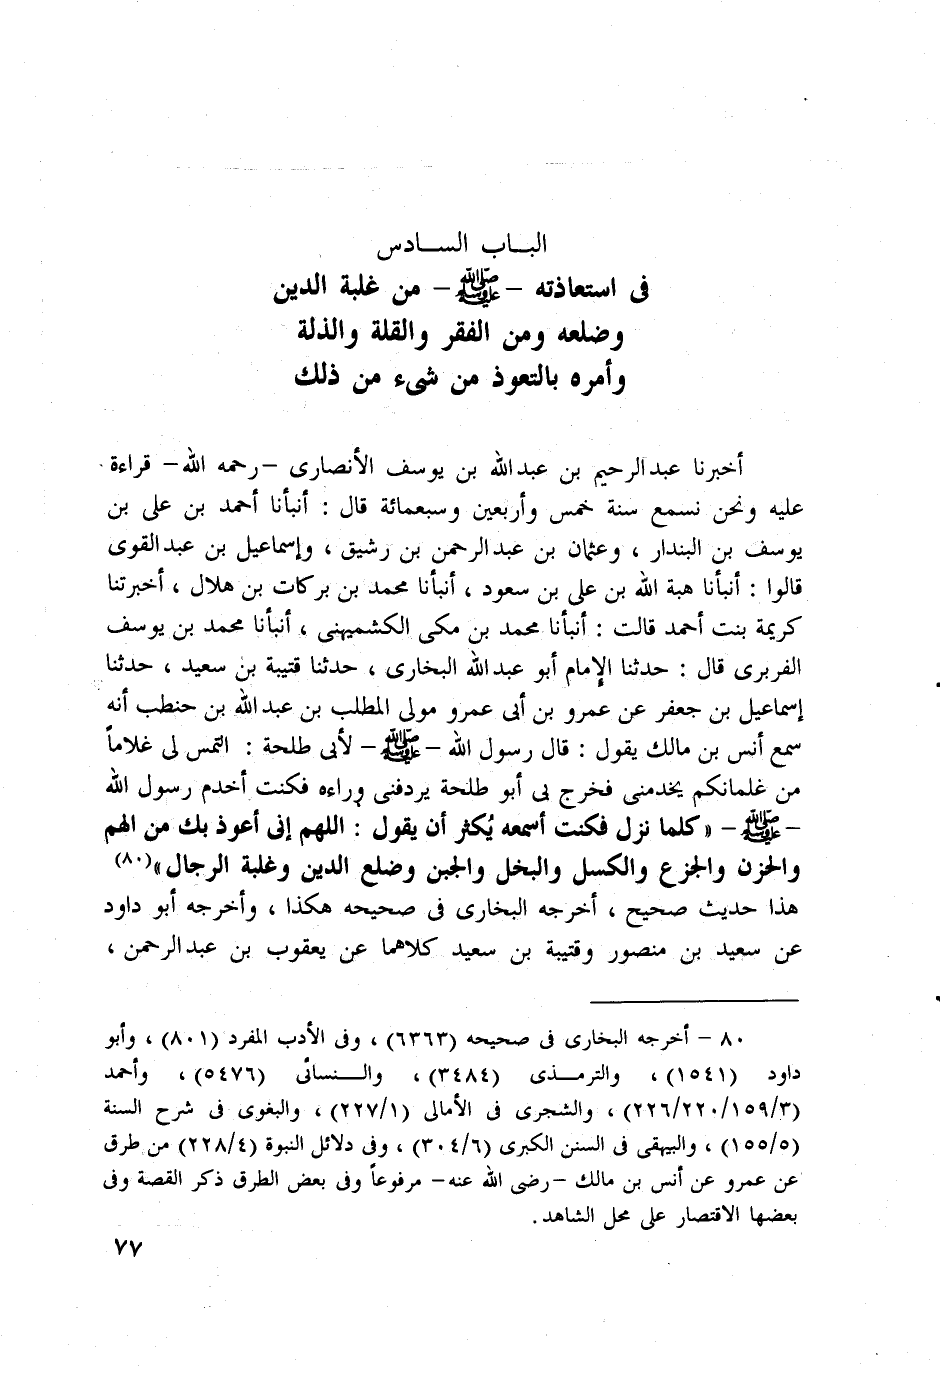 الباب السادس
فى استعاذته - ﷺ - من غلبة الدين
وضلعه ومن الفقر والقلة والذلة
وأمره بالتعوذ من شىء من ذلك
أخبرنا عبد الرحيم بن عبد الله بن يوسف الأنصارى -رحمه الله- قراءة
عليه ونحن نسمع سنة خمس وأربعين وسبعمائة قال : أنبأنا أحمد بن على بن
يوسف بن البندار ، وعثمان بن عبد الرحمن بن رشيق ، وإسماعيل بن عبد القوى
قالوا : أنبأنا هبة الله بن على بن سعود ، أنبأنا محمد بن بركات بن هلال ، أخبرتنا
كريمة بنت أحمد قالت : أنبأنا محمد بن مكى الكشميهنى ، أنبأنا محمد بن يوسف
الفربرى قال : حدثنا الإمام أبو عبد الله البخارى ، حدثنا قتيبة بن سعيد ، حدثنا
إسماعيل بن جعفر عن عمرو بن أبى عمرو مولى المطلب بن عبد الله بن حنطب أنه
سمع أنس بن مالك يقول : قال رسول الله - ﷺ - لأبى طلحة : التمس لى غلاماً
من غلمانكم يخدمنى فخرج بى أبو طلحة يردفنى وراءه فكنت أخدم رسول الله
- ﷺ - «كلما نزل فكنت أسمعه يُكثر أن يقول : اللهم إنى أعوذ بك من الهم
والحزن والجزع والكسل والبخل والجبن وضلع الدين وغلبة الرجال»(٨٠)
هذا حديث صحيح ، أخرجه البخارى فى صحيحه هكذا ، وأخرجه أبو داود
عن سعيد بن منصور وقتيبة بن سعيد كلاهما عن يعقوب بن عبد الرحمن ،
٨٠ - أخرجه البخارى فى صحيحه (٦٣٦٣) ، وفى الأدب المفرد (٨٠١) ، وأبو
داود (١٥٤١) ، والترمذى (٣٤٨٤) ، والنسائى (٥٤٧٦) ، وأحمد
(٣/١٥٩/٢٢٠/٢٢٦) ، والشجرى فى الأمالى (٢٢٧/١) ، والبغوى فى شرح السنة
(١٥٥/٥) ، والبيهقى فى السنن الكبرى (٣٠٤/٦) ، وفى دلائل النبوة (٢٢٨/٤) من طرق
عن عمرو عن أنس بن مالك -رضى الله عنه- مرفوعاً وفى بعض الطرق ذكر القصة وفى
بعضها الاقتصار على محل الشاهد.
٧٧